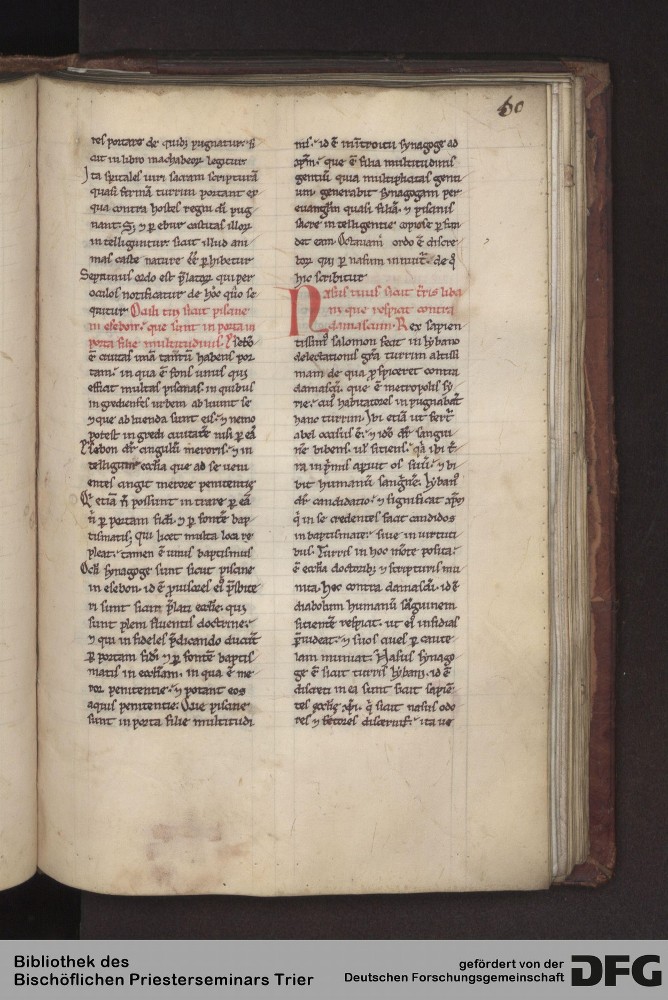 60
res portare de quibȝ pugnatur. s
cut in libro machabeorꝝ legitur
Ita spūales uiri sacram scripturā
quasi firmā turrim portant ex
qua contra hostes regni dī pug
nant. Sȝ ⁊ ꝑ ebur castitas illoꝝ
intelliguntur sicut illud ani
mal caste nature eē ꝑhibetur
Septimus ordo est p̄latoꝝ qui per
oculos notificatur de hͦc q̄io se
quitur Oculi tui sicut piscine
in esebon. que sunt in porta in
porta filie multitudinis.
ē ciuitas habens por
tam. in qua ē fons unus qui
efficit multas piscinas. in quibus
ingredientes urbem abluunt se
⁊ que abluenda sunt eis. ⁊ nemo
potest ingredi ciuitatē nisi ꝑ eā
Esebon dr̄ cingulū meroris. ⁊ in
telligitur eccl̄ia que ad se ueni
entes cingit merore penitentie
Qͥ etiā n̄ possunt intrare ꝑ eā
n̄ ꝑ portam fidei ⁊ ꝑ fontē bap
tismatis. qui licet multa loca re
pleat. tamen ē unus baptismus
Oc̄li synagoge sunt sicut piscine
in esebon. id ē p̄uisores eiꝰ p̄sbite
ri sunt sicut p̄lati eccl̄ie. qui
sunt pleni fluentis doctrine.
⁊ qui infideles p̄dicando ducūt
ꝑ portam fidei ⁊ ꝑ fontē baptis
matis in eccl̄iam. in qua ē me
ror penitentie. ⁊ potant eos
aquis penitentie. Que piscine
sunt in porta filie multitudi
nis. id ē in introitu synagoge ad
xp̄m. que ē filia multitudinis
gentiū quia multiplicitas genti
um generabit synagogam per
euangl̄m quasi filiā. ⁊ piscinis
sacre intelligentie copiose ꝑfun
det eam. Octauum ordo ē discre
toꝝ qui ꝑ nasum innuit̄. de qͦ
hic scribitur
Nasus tuus sicut t̄ris liba
ni que respicit contra
damascum. Rex sapien
tissimꝰ salomon fecit in lybano
delectationis gr̄a turrim altissi
mam de qua ꝑspiceret contra
damascū. que ē metropolis sy
rie. cuiꝰ habitatores inpugnabāt
hanc turrim. Ibi etiā ut fert̄
abel occisus ē. ⁊ idͦ dr̄ sangui
nē bibens. ul̄ sitiens. q̄a ibi t̄
ra in primis aperuit os suū. ⁊ bi
bit humanū sanguinē. Lybanꝰ
dr̄ candidatio. ⁊ significat xp̄m
qͥ in se credentes facit candidos
in baptismate. siue in uirtuti
bus. Turris in hoc mōte posita.
ē eccl̄ia doctoribȝ ⁊ scripturis mu
nita. hec contra damascū. id ē
diabolum humanū sāguinem
sitientē respicit. ut eiꝰ insidias
p̄uideat. ⁊ suos ciues ꝑ caute
lam muniat. Nasus synago
ge ē sicut turris lybani. id ē
discreti in ea sunt sicut sapiē
tes eccl̄ie xp̄i. qͥ sicut nasus odo
res ⁊ fetores discernit. ita ue
Bibliothek des
Bischöflichen Priesterseminars Trier
gefördert von der
Deutschen Forschungsgemeinschaft
DFG